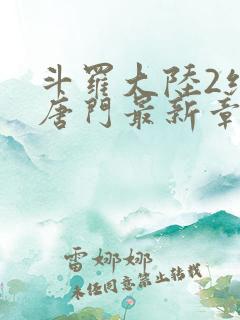 斗羅大陸2
唐門最新章
雷娜娜
未经同意禁止转载